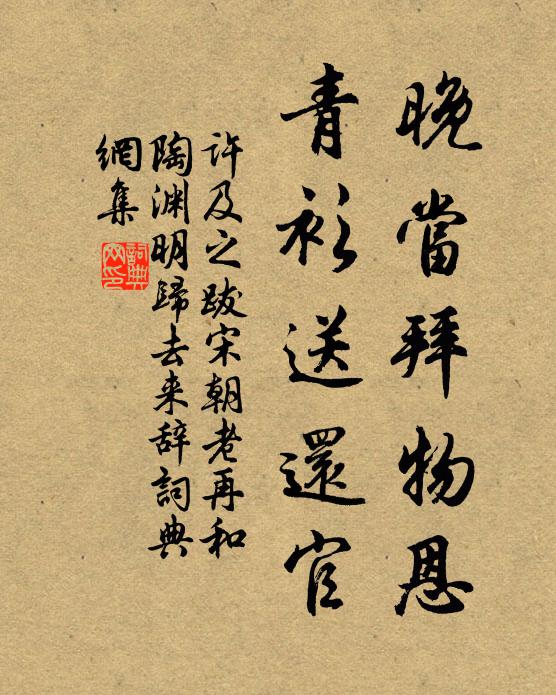 晚當拜物恩
青衫送還官
許及之跋宋朝老再和
陶渊明歸去来辞詞典
網集
詞典网印